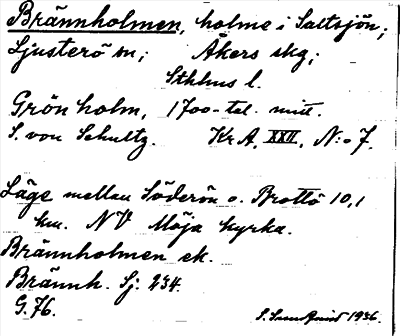 Brännholmen, holme i Saltsjön;
Ljusterö sn; Åkers skg;
Sthlms l.
Grön holm, 1700-tal. mitt.
S. von Schultz. Kr A, XXII, N:o 7.
Läge mellan Söderön o. Brottö 10,1
km. NV Möja kyrka.
Brännholmen ek.
Brännh. Sj: 234.
G. 76.
S. Sundquist 1936.